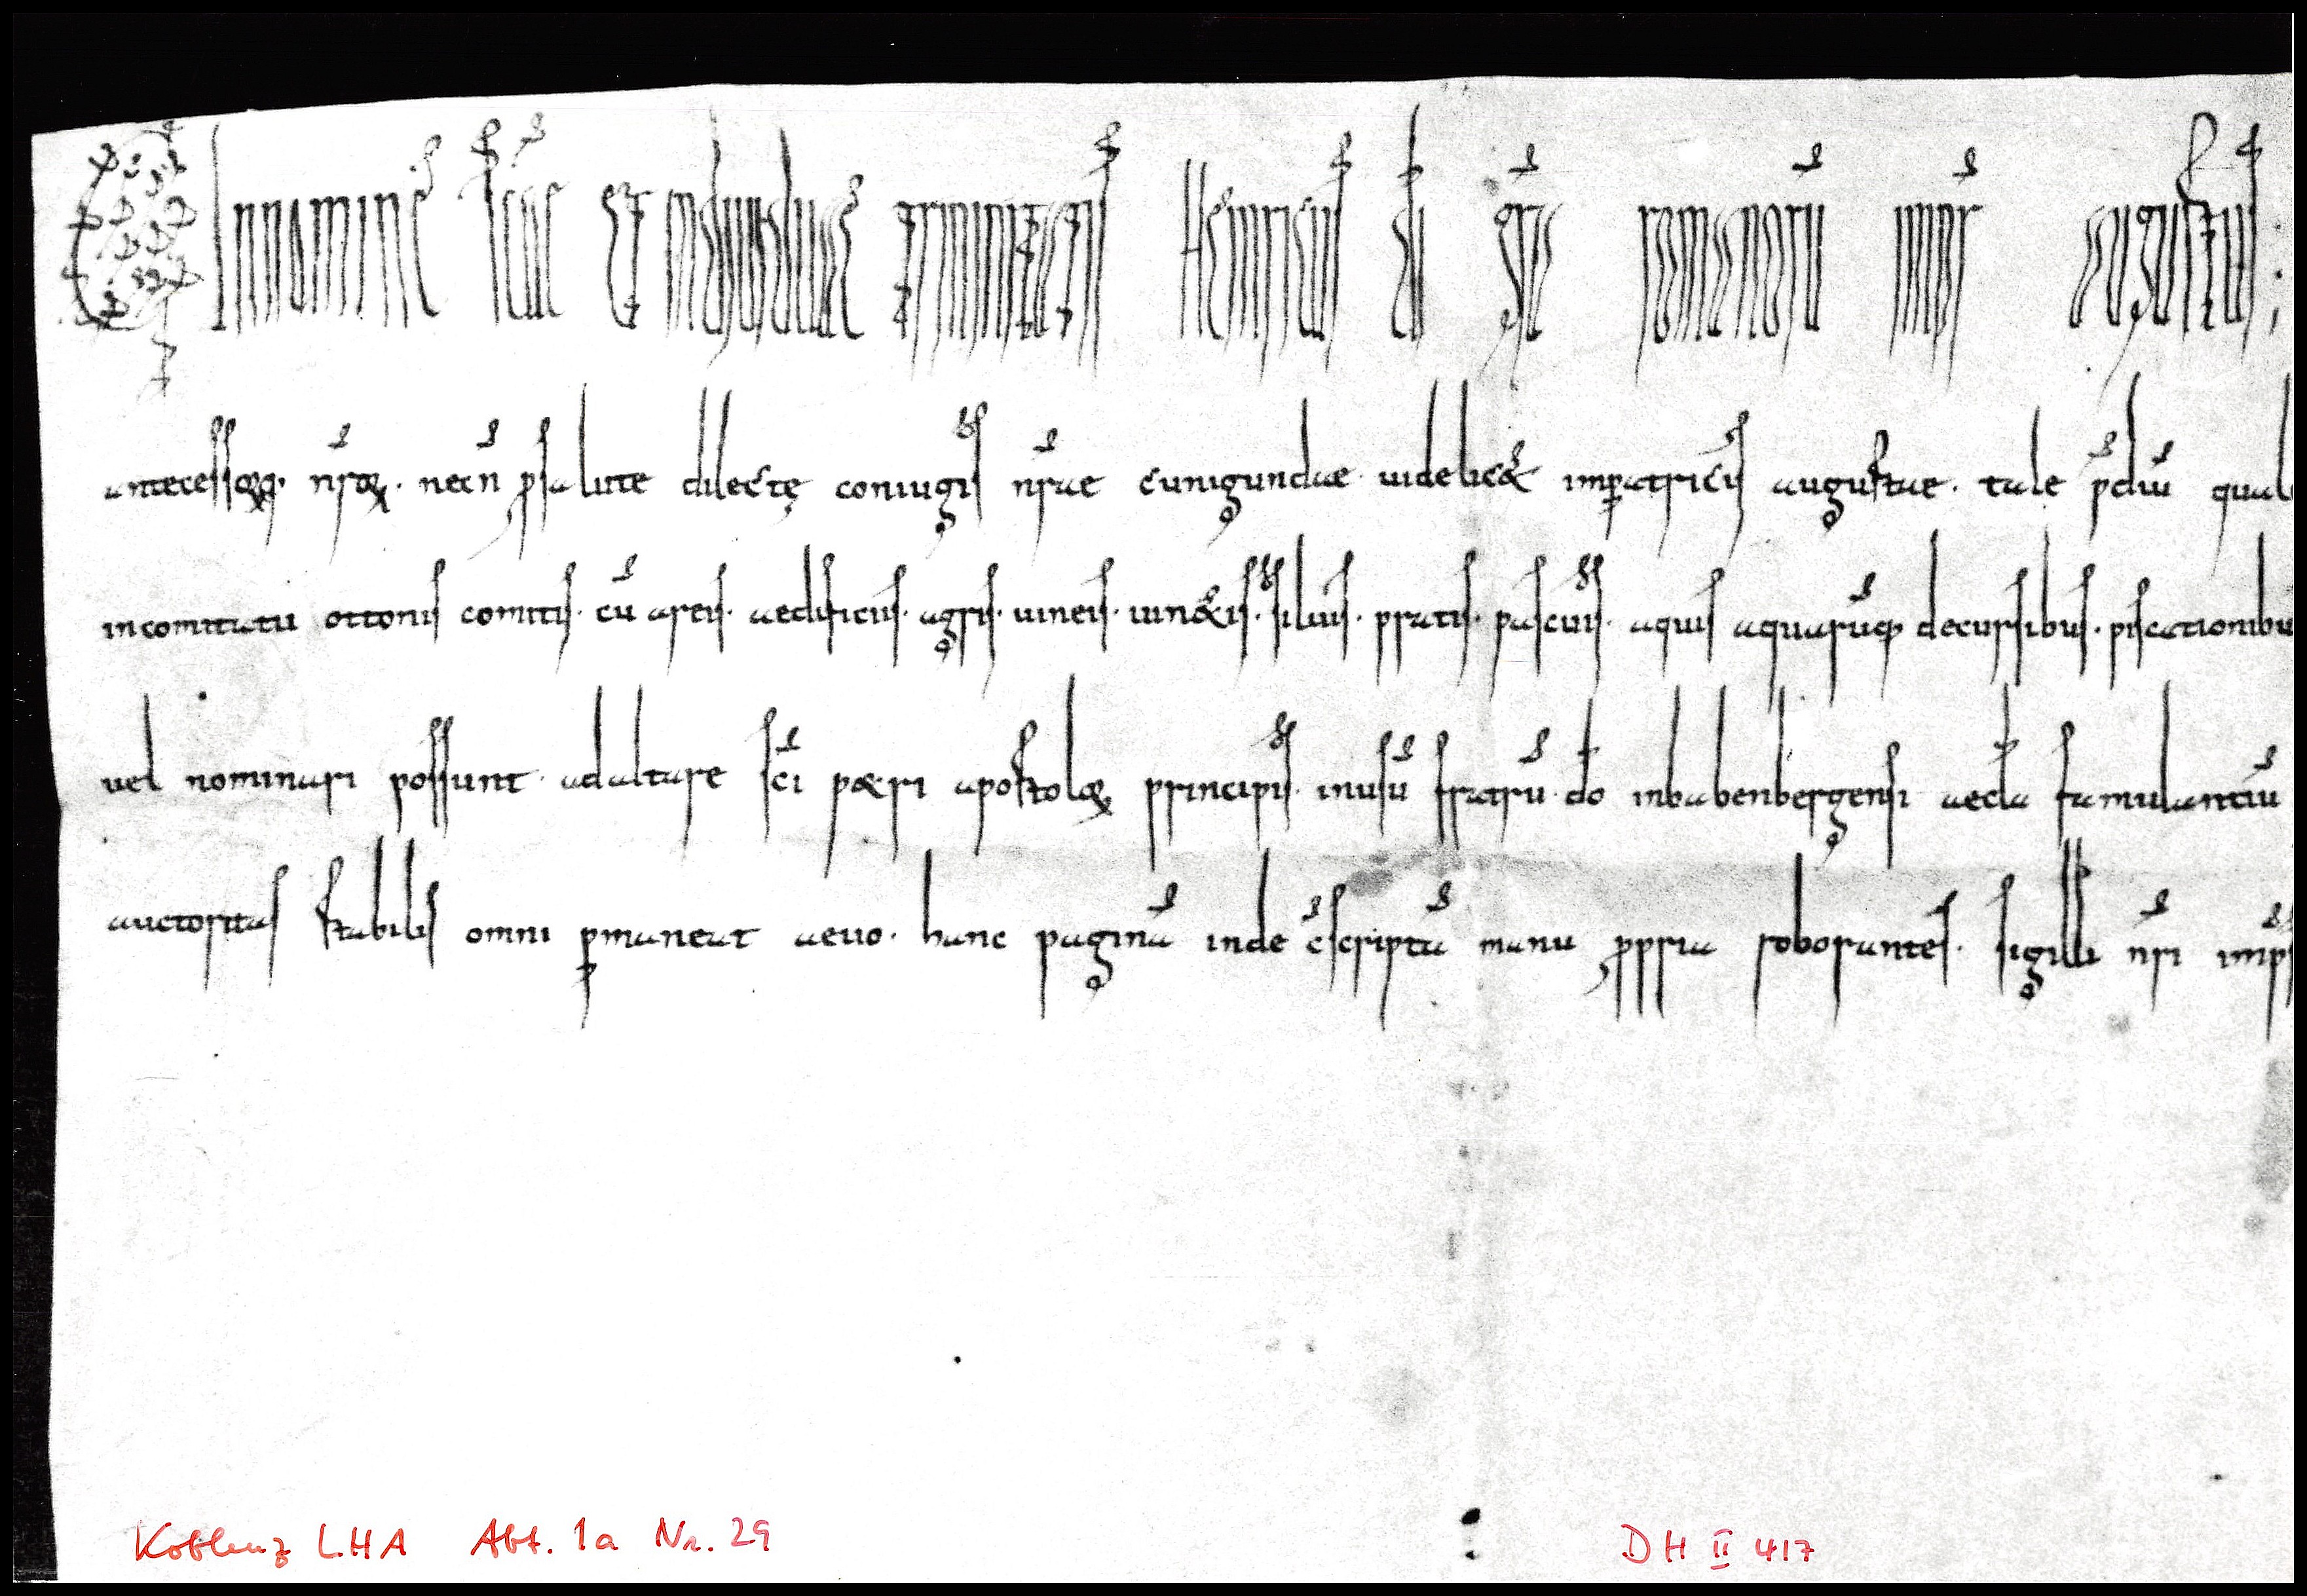 In nomine scae et indiuiduae trinitatis Heinricus di gra romanorū impr augustus;
antecessorꝝ nrꝝ. necn̄ ꝓ salute dilectę coniugis nrae cunigundae uidelic& imꝑatricis augustae. tale p̄diū qual
in comitatu ottonis comitis. cū areis. aedificiis. agris. uineis. uin&is. siluis. pratis. pascuis. aquis aquarūq; decursibus. piscationibu
uel nominari possunt ad altare sc̄i p&ri apostoloꝝ principis. in usū fratrū do in babenbergensi aeccla famulantiū
auctoritas stabilis omni ꝑmaneat aeuo. hanc paginā inde c̄scriptā manu ꝓpria roborantes. sigilli nr̄i imp̄s
Koblenz LHA Abt. 1a Nr. 29
DH II 417